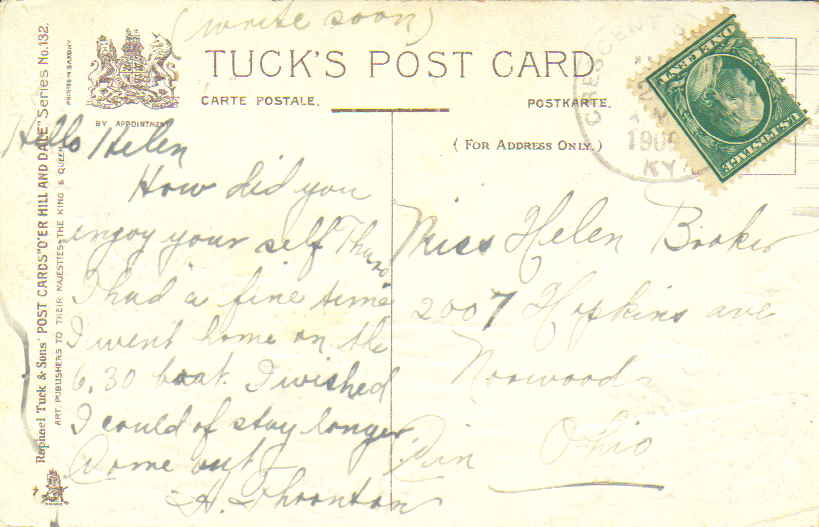 (write soon)
TUCK'S POST CARD
CARTE POSTALE.
POSTKARTE.
BY APPOINTMENT
(FOR ADDRESS ONLY.)
Raphael Tuck & Sons' POST CARDS "O'ER HILL AND DALE" Series No. 132.
ART PUBLISHERS TO THEIR MAJESTIES THE KING & QUEEN
PRINTED IN SAXONY
CRESCENT
190
KY
U.S. POSTAGE
ONE CENT
Hello Helen
How did you
enjoy your self Thurs
I had a fine time
I went home on the
6,30 boat. I wished
I could of stay longer
Come out
H. Thornton
Miss Helen Booker
2007 Hopkins ave
Norwood
Cin Ohio